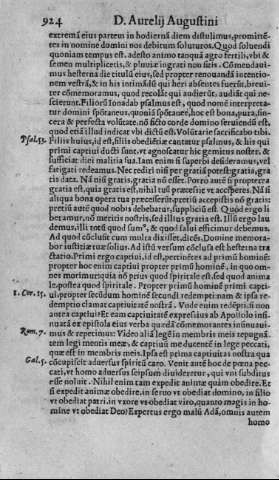 924 D. Aurelij Augustini
extremã eius partem in hodiernã diem distulimus, promittẽ-
tes in nomine domini nos debitum soluturos. Quod soluendi
quoniam tempus est, adesto animo tanquã agro fertili, vbi &
semen multiplicetis, & pluuiæ ingrati non sitis. Cõmendaui-
mus hesterna die titulũ eius, sed propter renouandã intentio-
nem vestrã, & in his intimãdũ qui heri absentes fuerũt, breui-
ter cõmemoramus, quod recolãt qui audierũt, audiãt qui ne-
scierunt. Filiorũ Ionadab psalmus est, quod nomẽ interpreta-
tur domini spõtaneus, quoniã spõtanee, hoc est bona, pura, sin-
cera & perfecta volũtate, nõ ficto corde domino seruiendũ est,
quod etiã illud indicat vbi dictũ est, Volũtarie sacrificabo tibi.
Psal.53. Filiis huius, id est, filiis obediẽtiæ cantatur psalmus, & his qui
primi captiui ducti sunt, vt agnoscatur hic gemitus noster, &
sufficiat diei malitia sua. Iam enim si superbi deseruimus, vel
fatigati redeamus. Nec rediri nisi per gratiã potest: gratia, gra
tis data. Nã nisi gratis, gratia nõ esset. Porro autẽ si propterea
gratia est, quia gratis est, nihil tuũ præcessit vt acciperes. Nã si
aliqua bona opera tua præcesserũt, pretiũ accepisti nõ gratis:
pretiũ autẽ quod nobis debebatur, suppliciũ est. Quod ergo li
beramur, nõ meritis nostris, sed illius gratia est. Illũ ergo lau
demus, illi totũ quod sum⁹, & quod salui efficimur debemus.
Ad quod cõclusit cum multa dixisset, dicẽs, Domine memora-
bor iustitiæ tuæ solius. Ad istũ versum cõclusa est hesterna tra
ctatio. Primi ergo captiui, id est, pertinẽtes ad primũ hominẽ:
propter hoc enim captiui propter primũ hominẽ, in quo om-
nes morimur: quia nõ prius quod spirituale est, sed quod anima
le, postea quod spirituale. Propter primũ hominẽ primi capti-
1. Cor. 15. ui, propter secũdum hominẽ secũdi redempti: nam & ipsa re-
demptio clamat captiuitatẽ nostrã. Vnde enim redẽpti, si non
antea captiui? Et eam captiuitatẽ expressius ab Apostolo insi-
nuatã ex epistola eius verba quædã cõmemorantes insinuaui-
Rom. 7. mus & repetimus: Video aliã legẽ in membris meis repugnã-
tem legi mentis meæ, & captiuũ me ducentẽ in lege peccati,
quæ est in membris meis. Ipsa est prima captiuitas nostra qua
Gal. 5. cõcupiscit aduersus spiritũ caro. Venit autẽ hoc de pœna pec
cati, vt homo aduersus seipsum diuideretur, qui vni subditus
esse noluit. Nihil enim tam expedit animæ quàm obedire. Et
si expedit animæ obedire, in seruo vt obediat domino, in filio
vt obediat patri, in vxore vt obediat viro, quanto magis in ho-
mine vt obediat Deo? Expertus ergo malũ Adã, omnis autem
homo